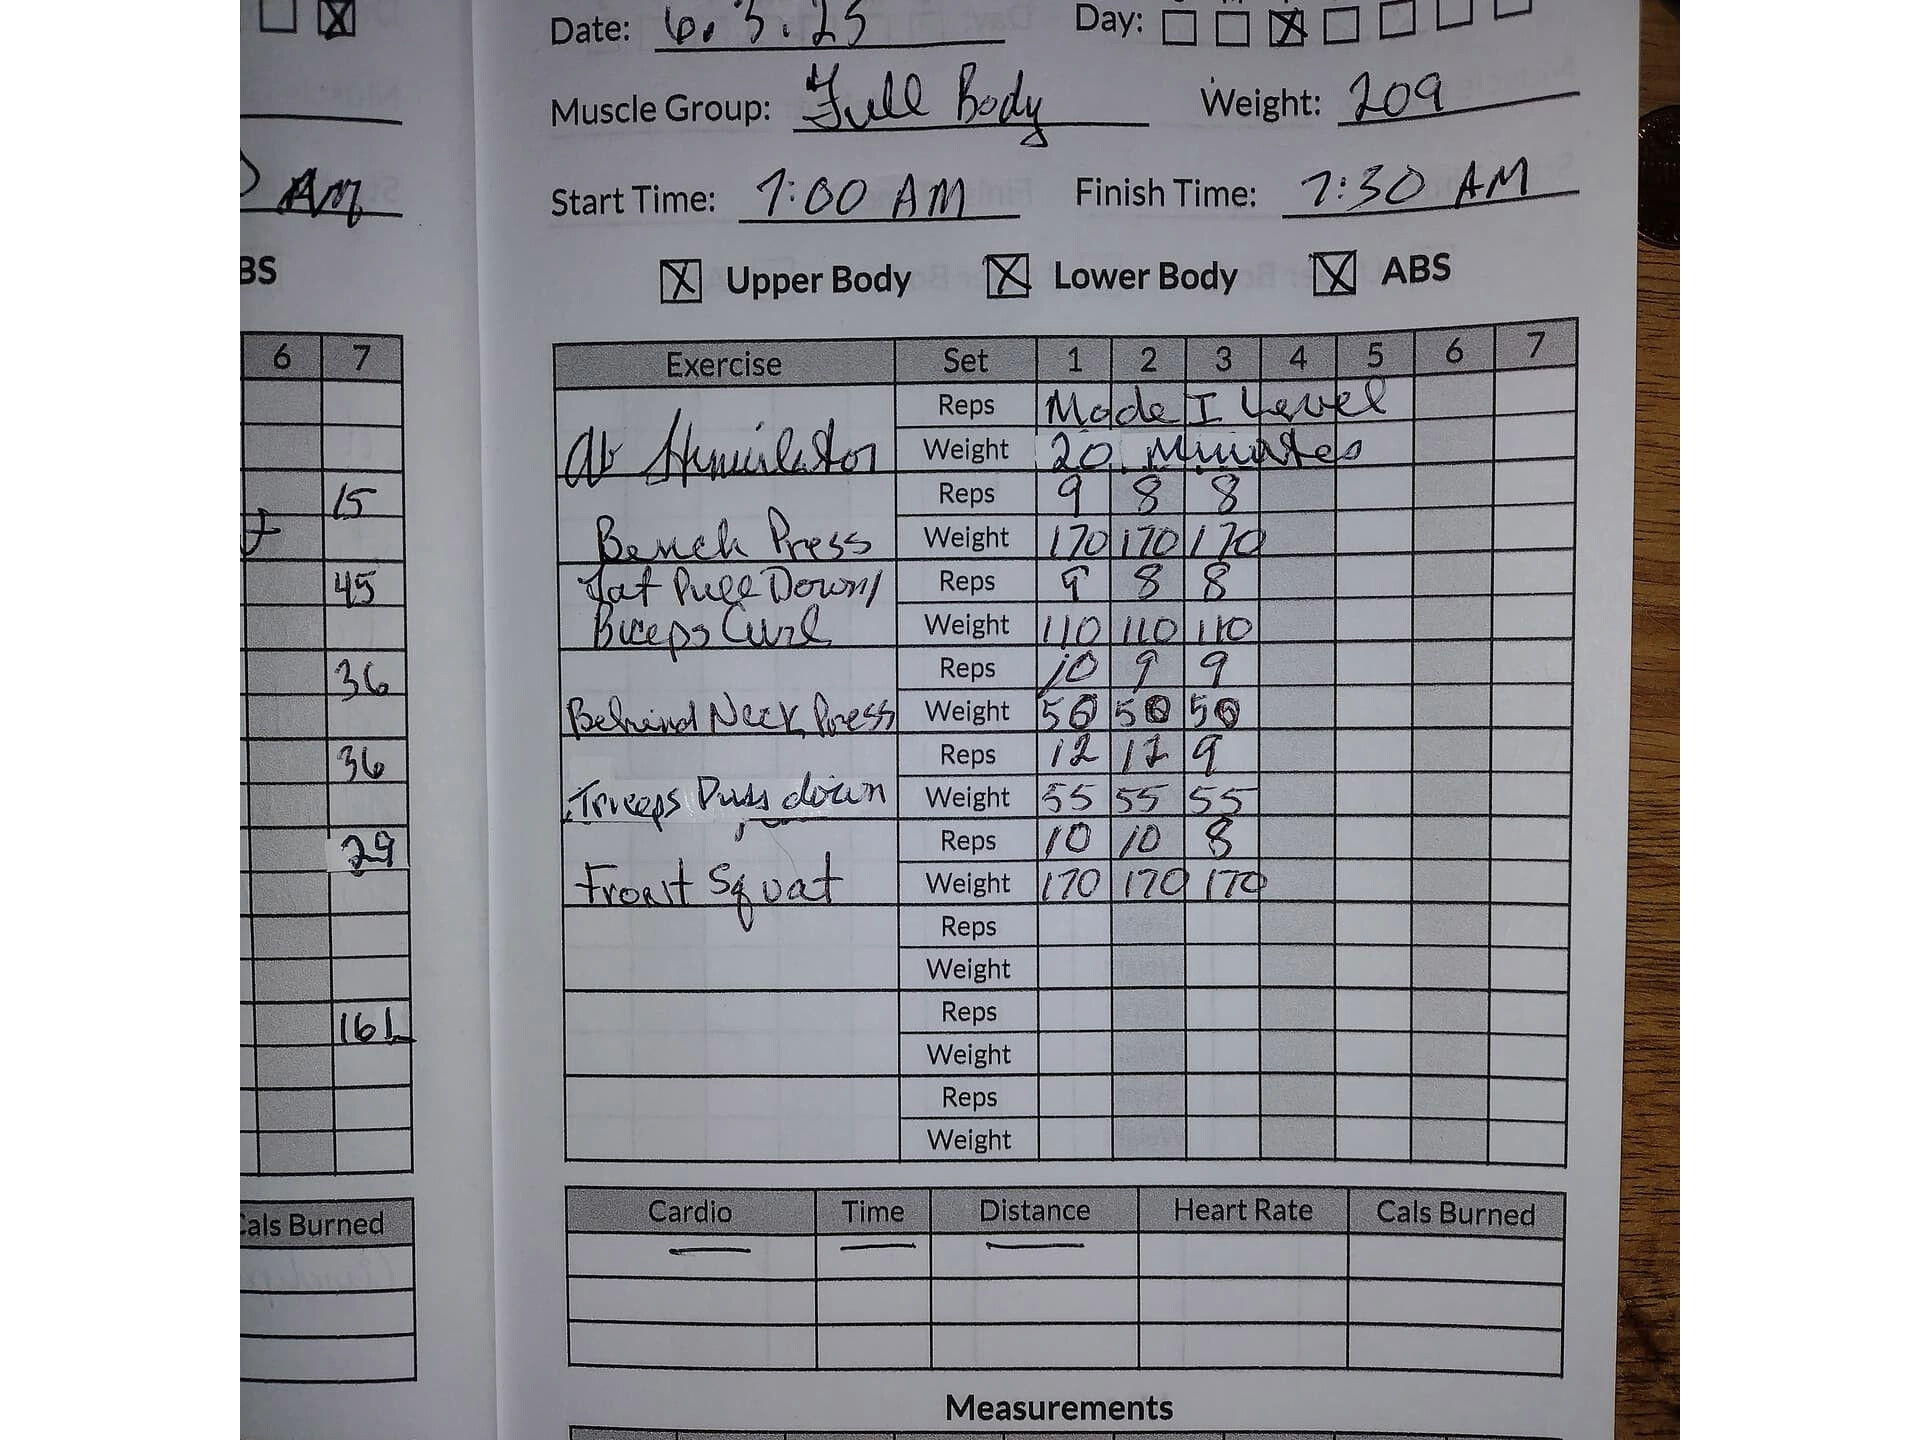 Date: 6.3.25 Day:
Muscle Group: Full Body Weight: 209
AM
Start Time: 7:00 AM Finish Time: 7:30 AM
BS
Upper Body Lower Body ABS
6 7
Exercise Set 1 2 3 4 5 6 7
Reps Mode I Level
Ab Stimulator Weight 20 Minutes
15
Reps 9 8 8
Bench Press Weight 170 170 170
45
Lat Pull Down/ Reps 9 8 8
Biceps Curl Weight 110 110 110
36
Reps 10 9 9
Behind Neck Press Weight 50 50 50
36
Reps 12 12 9
Triceps Push down Weight 55 55 55
29
Reps 10 10 8
Front Squat Weight 170 170 170
Reps
Weight
161
Reps
Weight
Reps
Weight
Cals Burned
Cardio Time Distance Heart Rate Cals Burned
Measurements